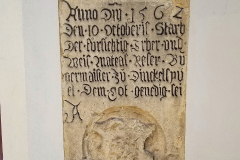 Anno Dm̄ · 1562
Den · 10 · Octoberis · Starb
Der fürsichtig Erber und
Weis Mateas Reser Bu
germaister zu Dinckelspu
el · Dem Got genedig sei
A